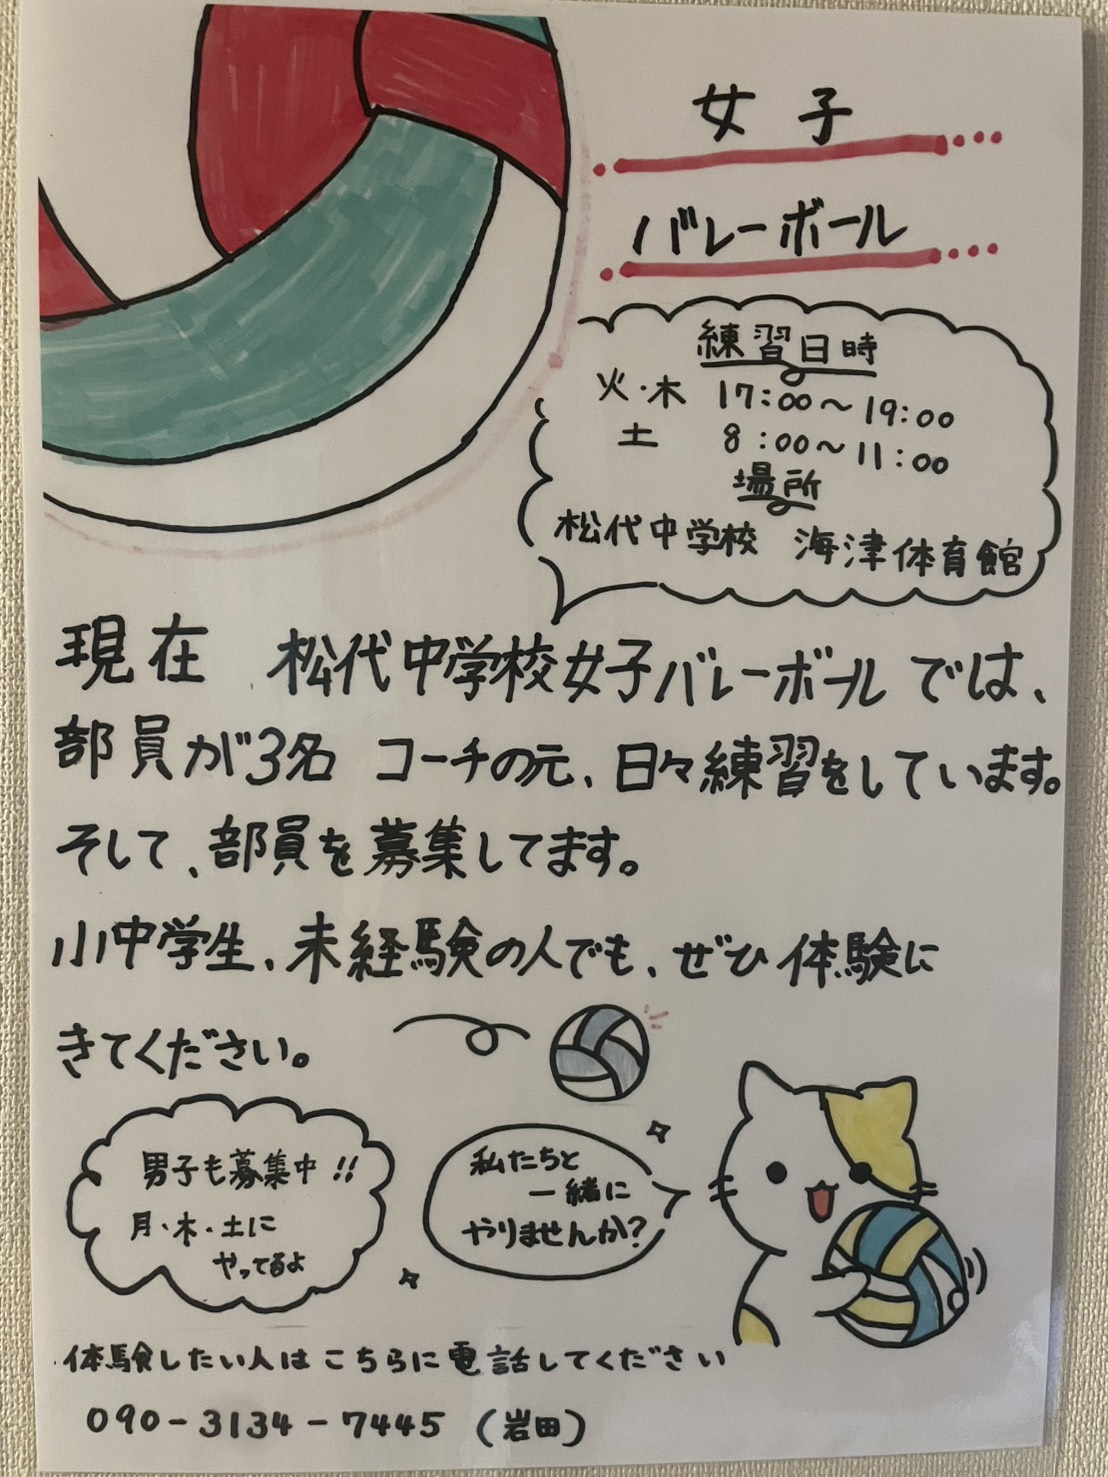 女子
バレーボール
練習日時
火・木 17:00～19:00
土 8:00～11:00
場所
松代中学校 海津体育館
現在 松代中学校女子バレーボールでは、
部員が3名 コーチの元、日々練習をしています。
そして、部員を募集してます。
小中学生、未経験の人でも、ぜひ体験に
きてください。
男子も募集中!!
月・木・土に
やってるよ
私たちと
一緒に
やりませんか?
体験したい人はこちらに電話してください
090-3134-7445 (岩田)